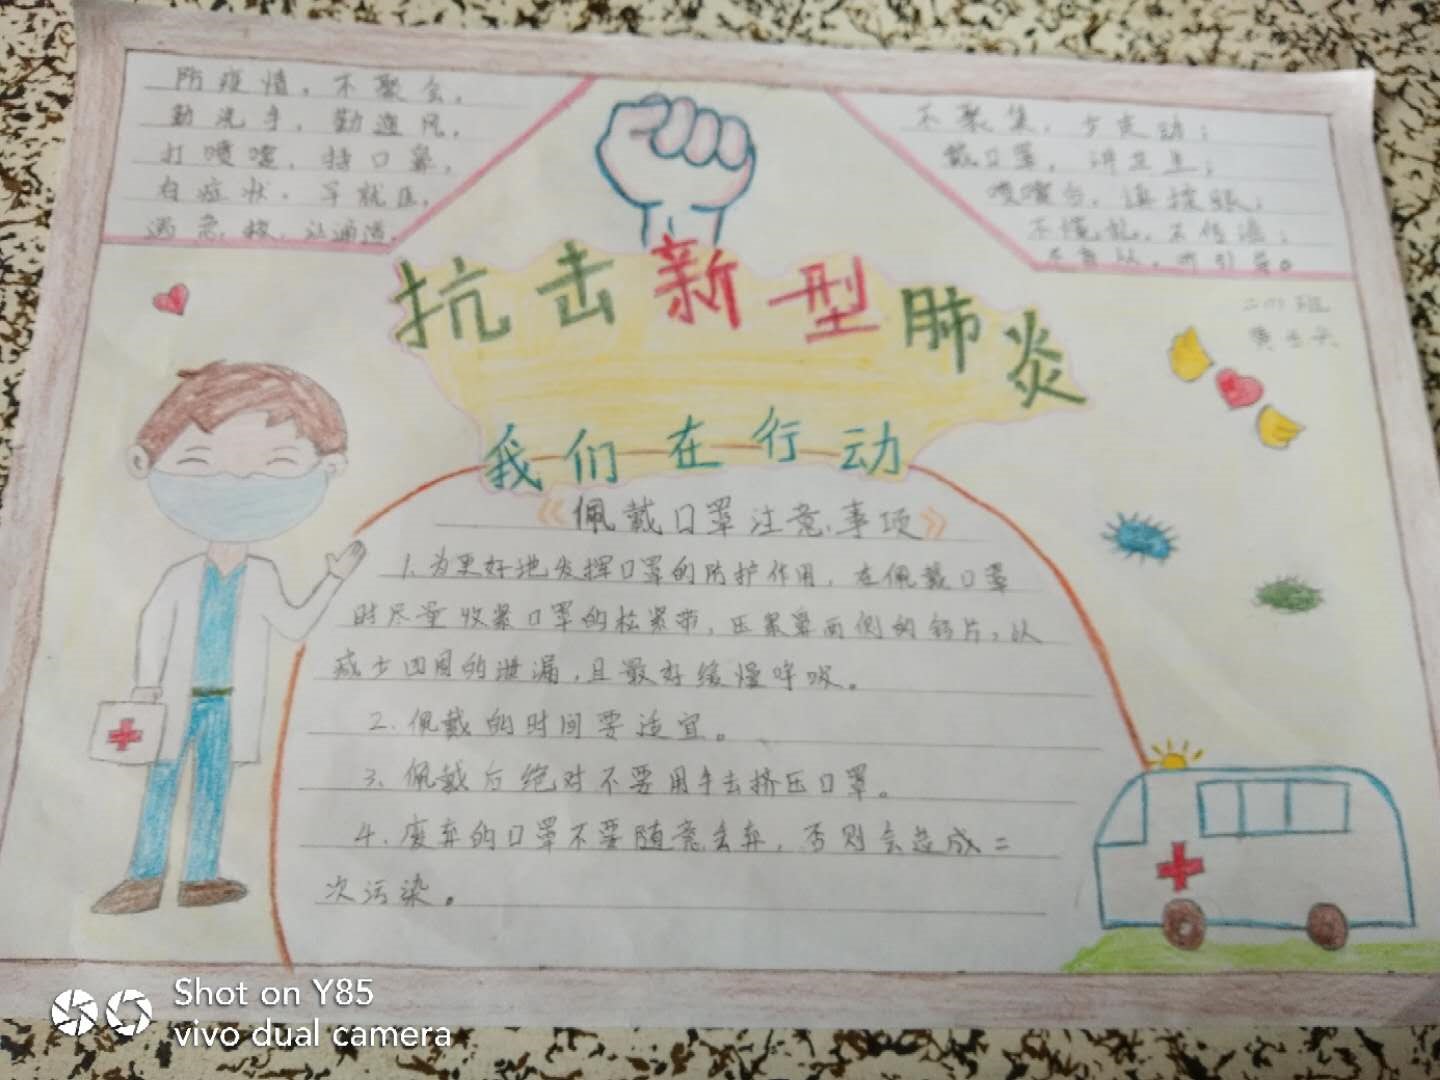 防疫情，不聚会，
勤洗手，勤通风，
打喷嚏，捂口鼻，
有症状，早就医，
不聚集，少走动；
戴口罩，讲卫生；
不慌乱，不传谣；
抗击新型肺炎
我们在行动
《佩戴口罩注意事项》
1.为更好地发挥口罩的防护作用，在佩戴口罩
时尽量收紧口罩的松紧带，压紧鼻两侧的铝片，以
减少四周的泄漏，且最好缓慢呼吸。
2、佩戴的时间要适宜。
3、佩戴后绝对不要用手去挤压口罩。
4、废弃的口罩不要随意丢弃，否则会造成二
次污染。
Shot on Y85
vivo dual camera